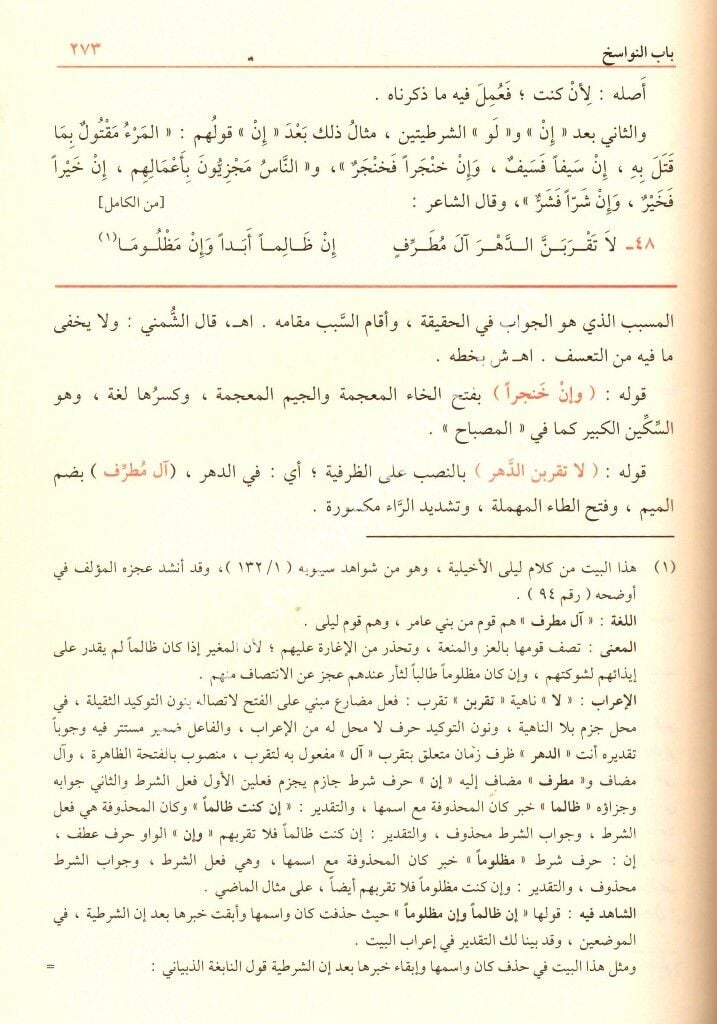 باب النواسخ ٢٧٣
أَصله : لِأنْ كنت ؛ فَعُمِلَ فيه ما ذكرناه .
والثاني بعد « إِنْ » و« لَو » الشرطيتين ، مثالُ ذلك بَعْدَ « إِنْ » قولُهم : « المَرْءُ مَقْتُولٌ بِمَا
قَتَلَ بِهِ ، إِنْ سَيفاً فَسَيفٌ ، وَإِنْ خنْجَراً فَخنْجَرٌ »، و« النَّاسُ مَجْزِيُّونَ بِأَعْمَالِهِم ، إِنْ خَيْراً
فَخَيْرٌ ، وَإِنْ شَرّاً فَشَرٌّ »، وقال الشاعر : [من الكامل]
٤٨ـ لاَ تَقْرَبَنَّ الـدَّهْـرَ آلَ مُطَـرِّفٍ إِنْ ظَـالِمـاً أَبَـداً وَإِنْ مَظْلُـومَـا(١)
المسبب الذي هو الجواب في الحقيقة ، وأقام السَّبب مقامه . اهـ، قال الشُّمني : ولا يخفى
ما فيه من التعسف . اهـ ش بخطه .
قوله : ( وإنْ خَنجراً ) بفتح الخاء المعجمة والجيم المعجمة ، وكسرُها لغة ، وهو
السِّكِّين الكبير كما في « المصباح » .
قوله : ( لا تقربن الدَّهر ) بالنصب على الظرفية ؛ أي : في الدهر ، (آل مُطرِّف ) بضم
الميم ، وفتح الطاء المهملة ، وتشديد الرَّاء مكسورة .
(١) هذا البيت من كلام ليلى الأخيلية ، وهو من شواهد سيبويه ( ١/ ١٣٢ )، وقد أنشد عجزه المؤلف في
أوضحه ( رقم ٩٤ ) .
اللغة : « آل مطرف » هم قوم من بني عامر ، وهم قوم ليلى .
المعنى : تصف قومها بالعز والمنعة ، وتحذر من الإغارة عليهم ؛ لأن المغير إذا كان ظالماً لم يقدر على
إيذائهم لشوكتهم ، وإن كان مظلوماً طالباً لثأر عندهم عجز عن الانتصاف منهم .
الإعراب : « لا » ناهية « تقربن » تقرب : فعل مضارع مبني على الفتح لاتصاله بنون التوكيد الثقيلة ، في
محل جزم بلا الناهية ، ونون التوكيد حرف لا محل له من الإعراب ، والفاعل ضمير مستتر فيه وجوباً
تقديره أنت « الدهر » ظرف زمان متعلق بتقرب « آل » مفعول به لتقرب ، منصوب بالفتحة الظاهرة ، وآل
مضاف و« مطرف » مضاف إليه « إن » حرف شرط جازم يجزم فعلين الأول فعل الشرط والثاني جوابه
وجزاؤه « ظالما » خبر كان المحذوفة مع اسمها ، والتقدير : « إن كنت ظالماً » وكان المحذوفة هي فعل
الشرط ، وجواب الشرط محذوف ، والتقدير : إن كنت ظالماً فلا تقربهم « وإن » الواو حرف عطف ،
إن : حرف شرط « مظلوماً » خبر كان المحذوفة مع اسمها ، وهي فعل الشرط ، وجواب الشرط
محذوف ، والتقدير : وإن كنت مظلوماً فلا تقربهم أيضاً ، على مثال الماضي .
الشاهد فيه : قولها « إن ظالماً وإن مظلوماً » حيث حذفت كان واسمها وأبقت خبرها بعد إن الشرطية ، في
الموضعين ، وقد بينا لك التقدير في إعراب البيت .
ومثل هذا البيت في حذف كان واسمها وإبقاء خبرها بعد إن الشرطية قول النابغة الذبياني : =